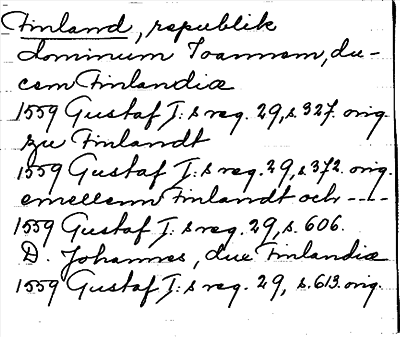 Finland, republik
dominum Joannem, du-
cem Finlandiæ
1559 Gustaf I:s reg. 29, s. 327. orig.
zu Finlandt
1559 Gustaf I:s reg. 29, s. 372. orig.
emellem Finlandt och ----
1559 Gustaf I:s reg. 29, s. 606.
D. Johannes, dux Finlandiæ
1559 Gustaf I:s reg. 29, s. 613. orig.